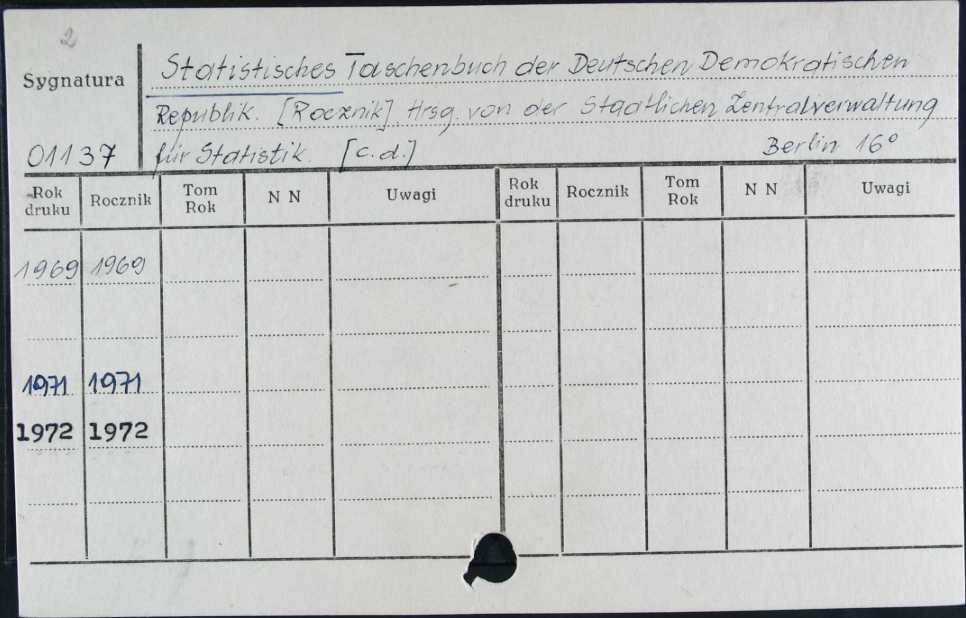 2
Sygnatura
Statistisches Taschenbuch der Deutschen Demokratischen
Republik. [Rocznik]. Hrsg. von der Staatlichen Zentralverwaltung
01137 für Statistik. [c.d.] Berlin 16°
Rok druku Rocznik Tom Rok N N Uwagi Rok druku Rocznik Tom Rok N N Uwagi
1969 1969
1971 1971
1972 1972